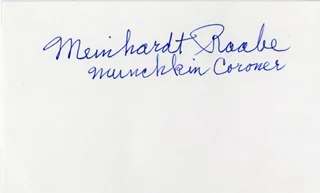 Meinhardt Raabe
Munchkin Coroner